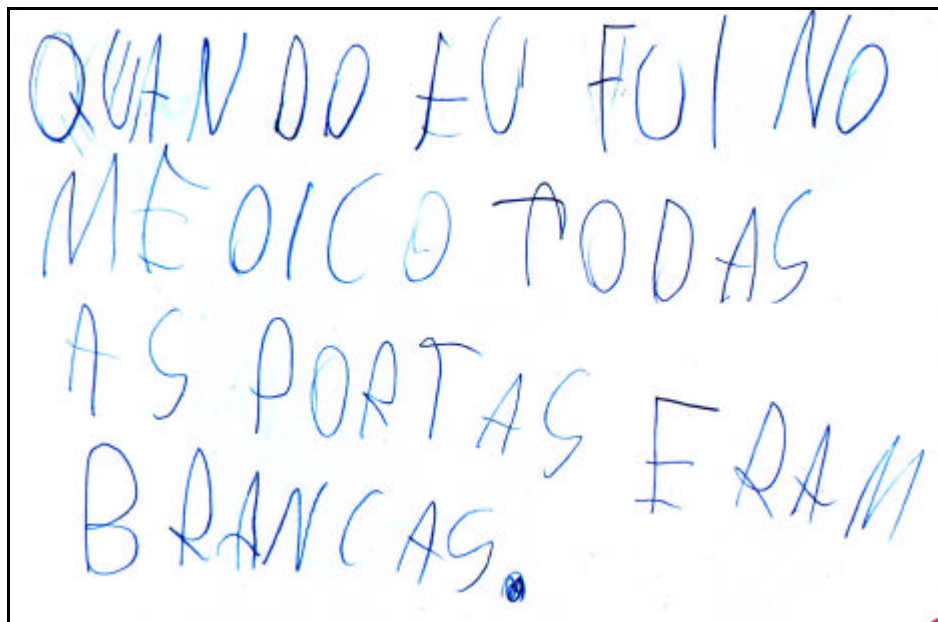 QUANDO EU FUI NO
MEDICO TODAS
AS PORTAS ERAM
BRANCAS.